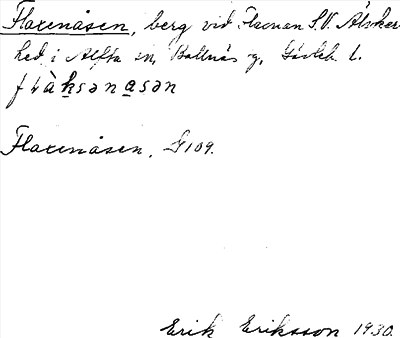 Flaxenåsen, berg vid Flaxnan S.V. Älvkar
hed i Alfta sn, Bollnäs g, Gävleb. l.
Flaxenåsen, G109.
Erik Eriksson 1930.